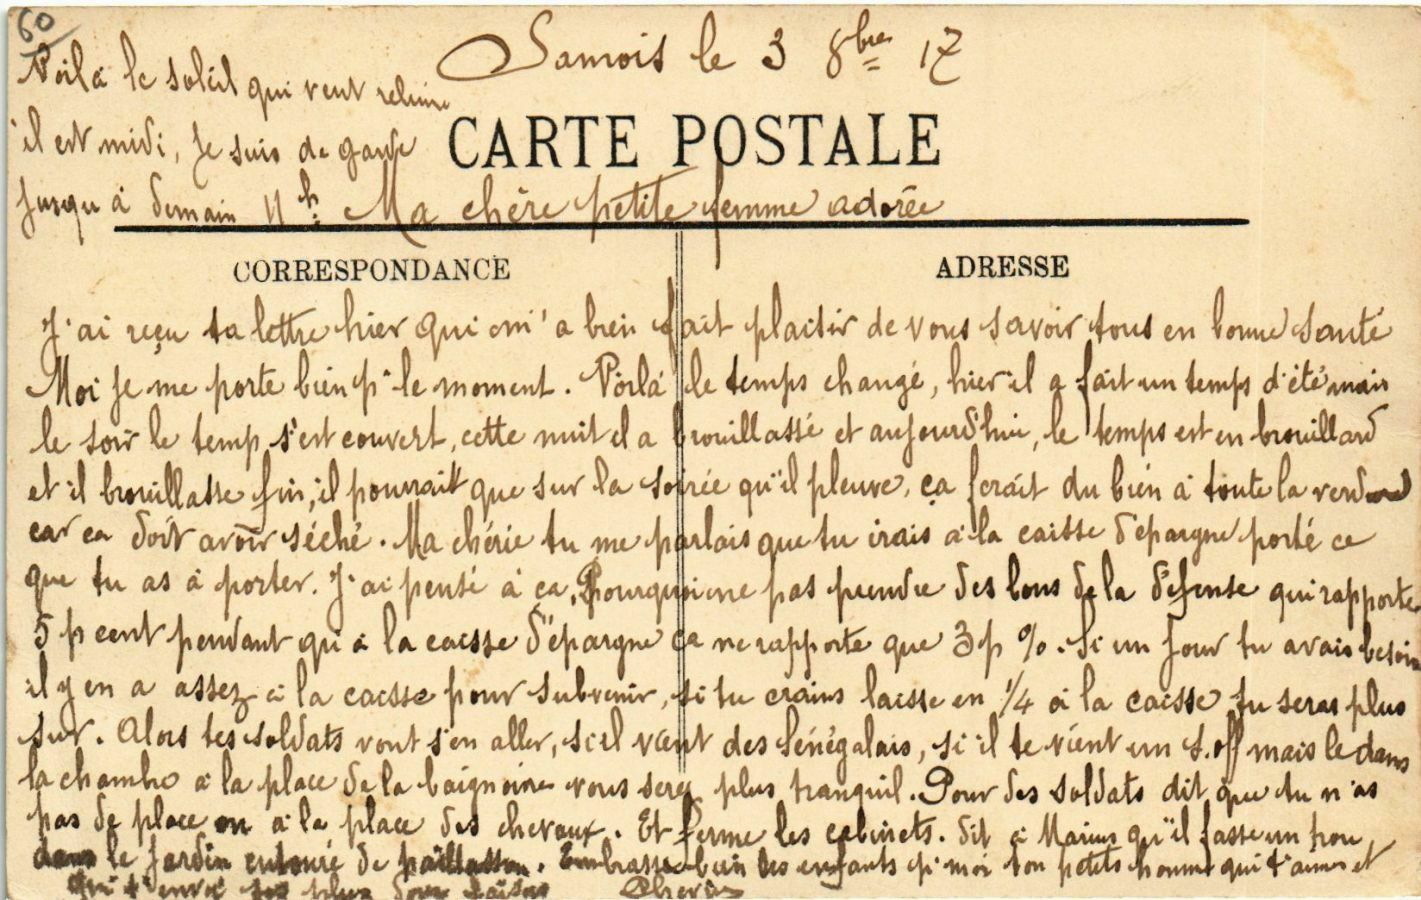 60
Samois le 3 8bre 17
Voilà le soleil qui veut reluire
il est midi, je suis de garde
jusqu'à demain 11h.
CARTE POSTALE
Ma chère petite femme adorée
CORRESPONDANCE
ADRESSE
J'ai reçu ta lettre hier qui m'a bien fait plaisir de vous savoir tous en bonne santé
Moi je me porte bien pr le moment. Voilà le temps changé, hier il a fait un temps d'été mais
le soir le temp s'est couvert, cette nuit il a brouillassé et aujourd'hui, le temps est en brouillard
et il brouillasse fin, il pourrait que sur la soirée qu'il pleuve, ça ferait du bien à toute la
car ca doit avoir séché. Ma chérie tu me parlais que tu irais à la caisse d'epargne porté ce
que tu as à porter. J'ai pensé à ça, Pourquoi ne pas prendre des bons de la défense qui rapporte
5 p cent pendant qu'à la caisse d'épargne ça ne rapporte que 3 p %. Si un jour tu avais besoin
il y en a assez à la caisse pour subvenir, si tu crains laisse en 1/4 à la caisse tu seras plus
sur. Alors tes soldats vont s'en aller, si il vient des Sénégalais, si il te vient un s.off mais le dans
la chambre à la place de la baignoire vous sera plus tranquil. Pour des soldats dit que tu n'as
pas de place on à la place des chevaux. Et ferme les cabinets. dit à Marius qu'il fasse un trou
dans le jardin entouré de paillasson. Embrasse bien les enfants pr moi ton petit homme qui t'aime et
qui t'envoi ses plus doux baisers